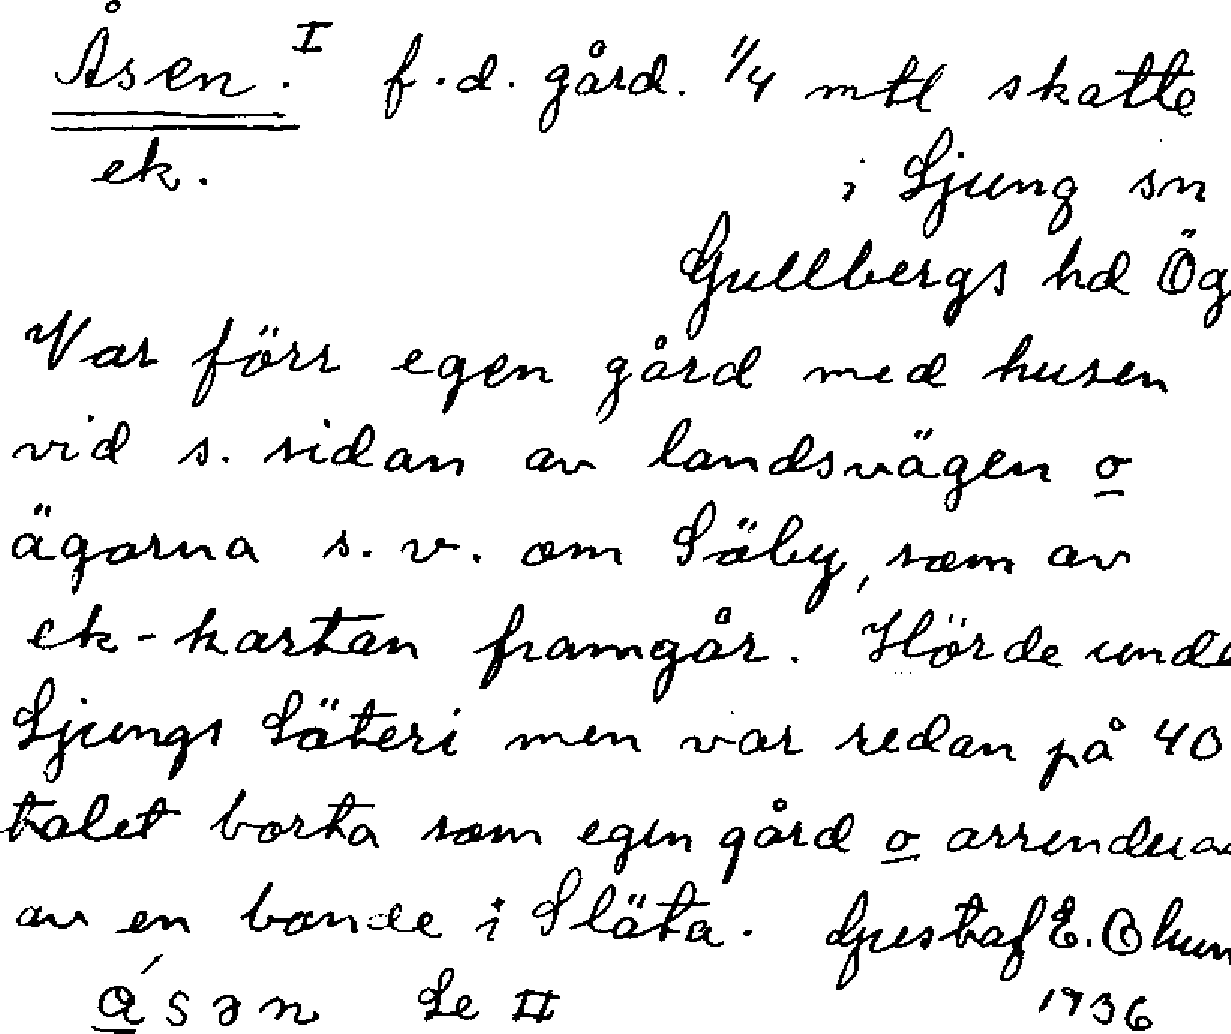 Åsen. I f.d. gård. 1/4 mtl skatte
ek. i Ljung sn
Gullbergs hd Ög
Var förr egen gård med husen
vid s. sidan av landsvägen o
ägorna s.v. om Säby, som av
ek-kartan framgår. Hörde unde
Ljungs Säteri men var redan på 40
talet borta som egen gård o
av en bonde i Släta. Gustaf E.
åsən Se II 1936